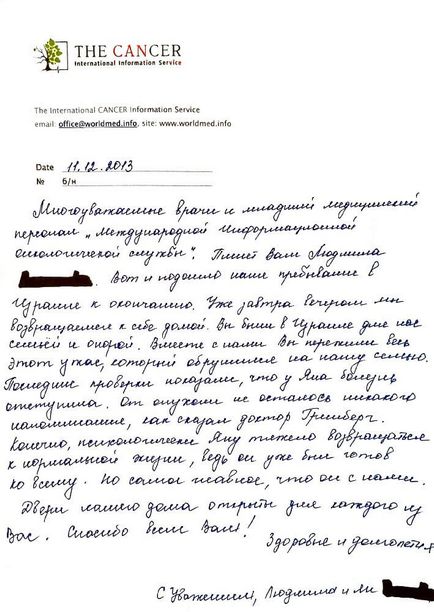 THE CANCER
International Information Service
The International CANCER Information Service
email: office@worldmed.info, site: www.worldmed.info
Date 11.12.2013
№ б/н
Многоуважаемые врачи и младший медицинский
персонал „Международной Информационной
онкологической службы". Пишет Вам Людмила
Вот и подошло наше пребывание в
Израиле к окончанию. Уже завтра вечером мы
возвращаемся к себе домой. Вы были в Израиле для нас
семьёй и опорой. Вместе с нами Вы пережили весь
этот ужас, который обрушился на нашу семью.
Последние проверки показали, что у Яна болезнь
отступила. От опухоли не осталось никакого
напоминания, как сказал доктор Гринберг.
Конечно, психологически Яну тяжело возвращаться
к нормальной жизни, ведь он уже был готов
ко всему. Но самое главное, что он с нами.
Двери нашего дома открыты для каждого из
Вас. Спасибо всем Вам!
Здоровья и долголетия
С Уважением, Людмила и Ян